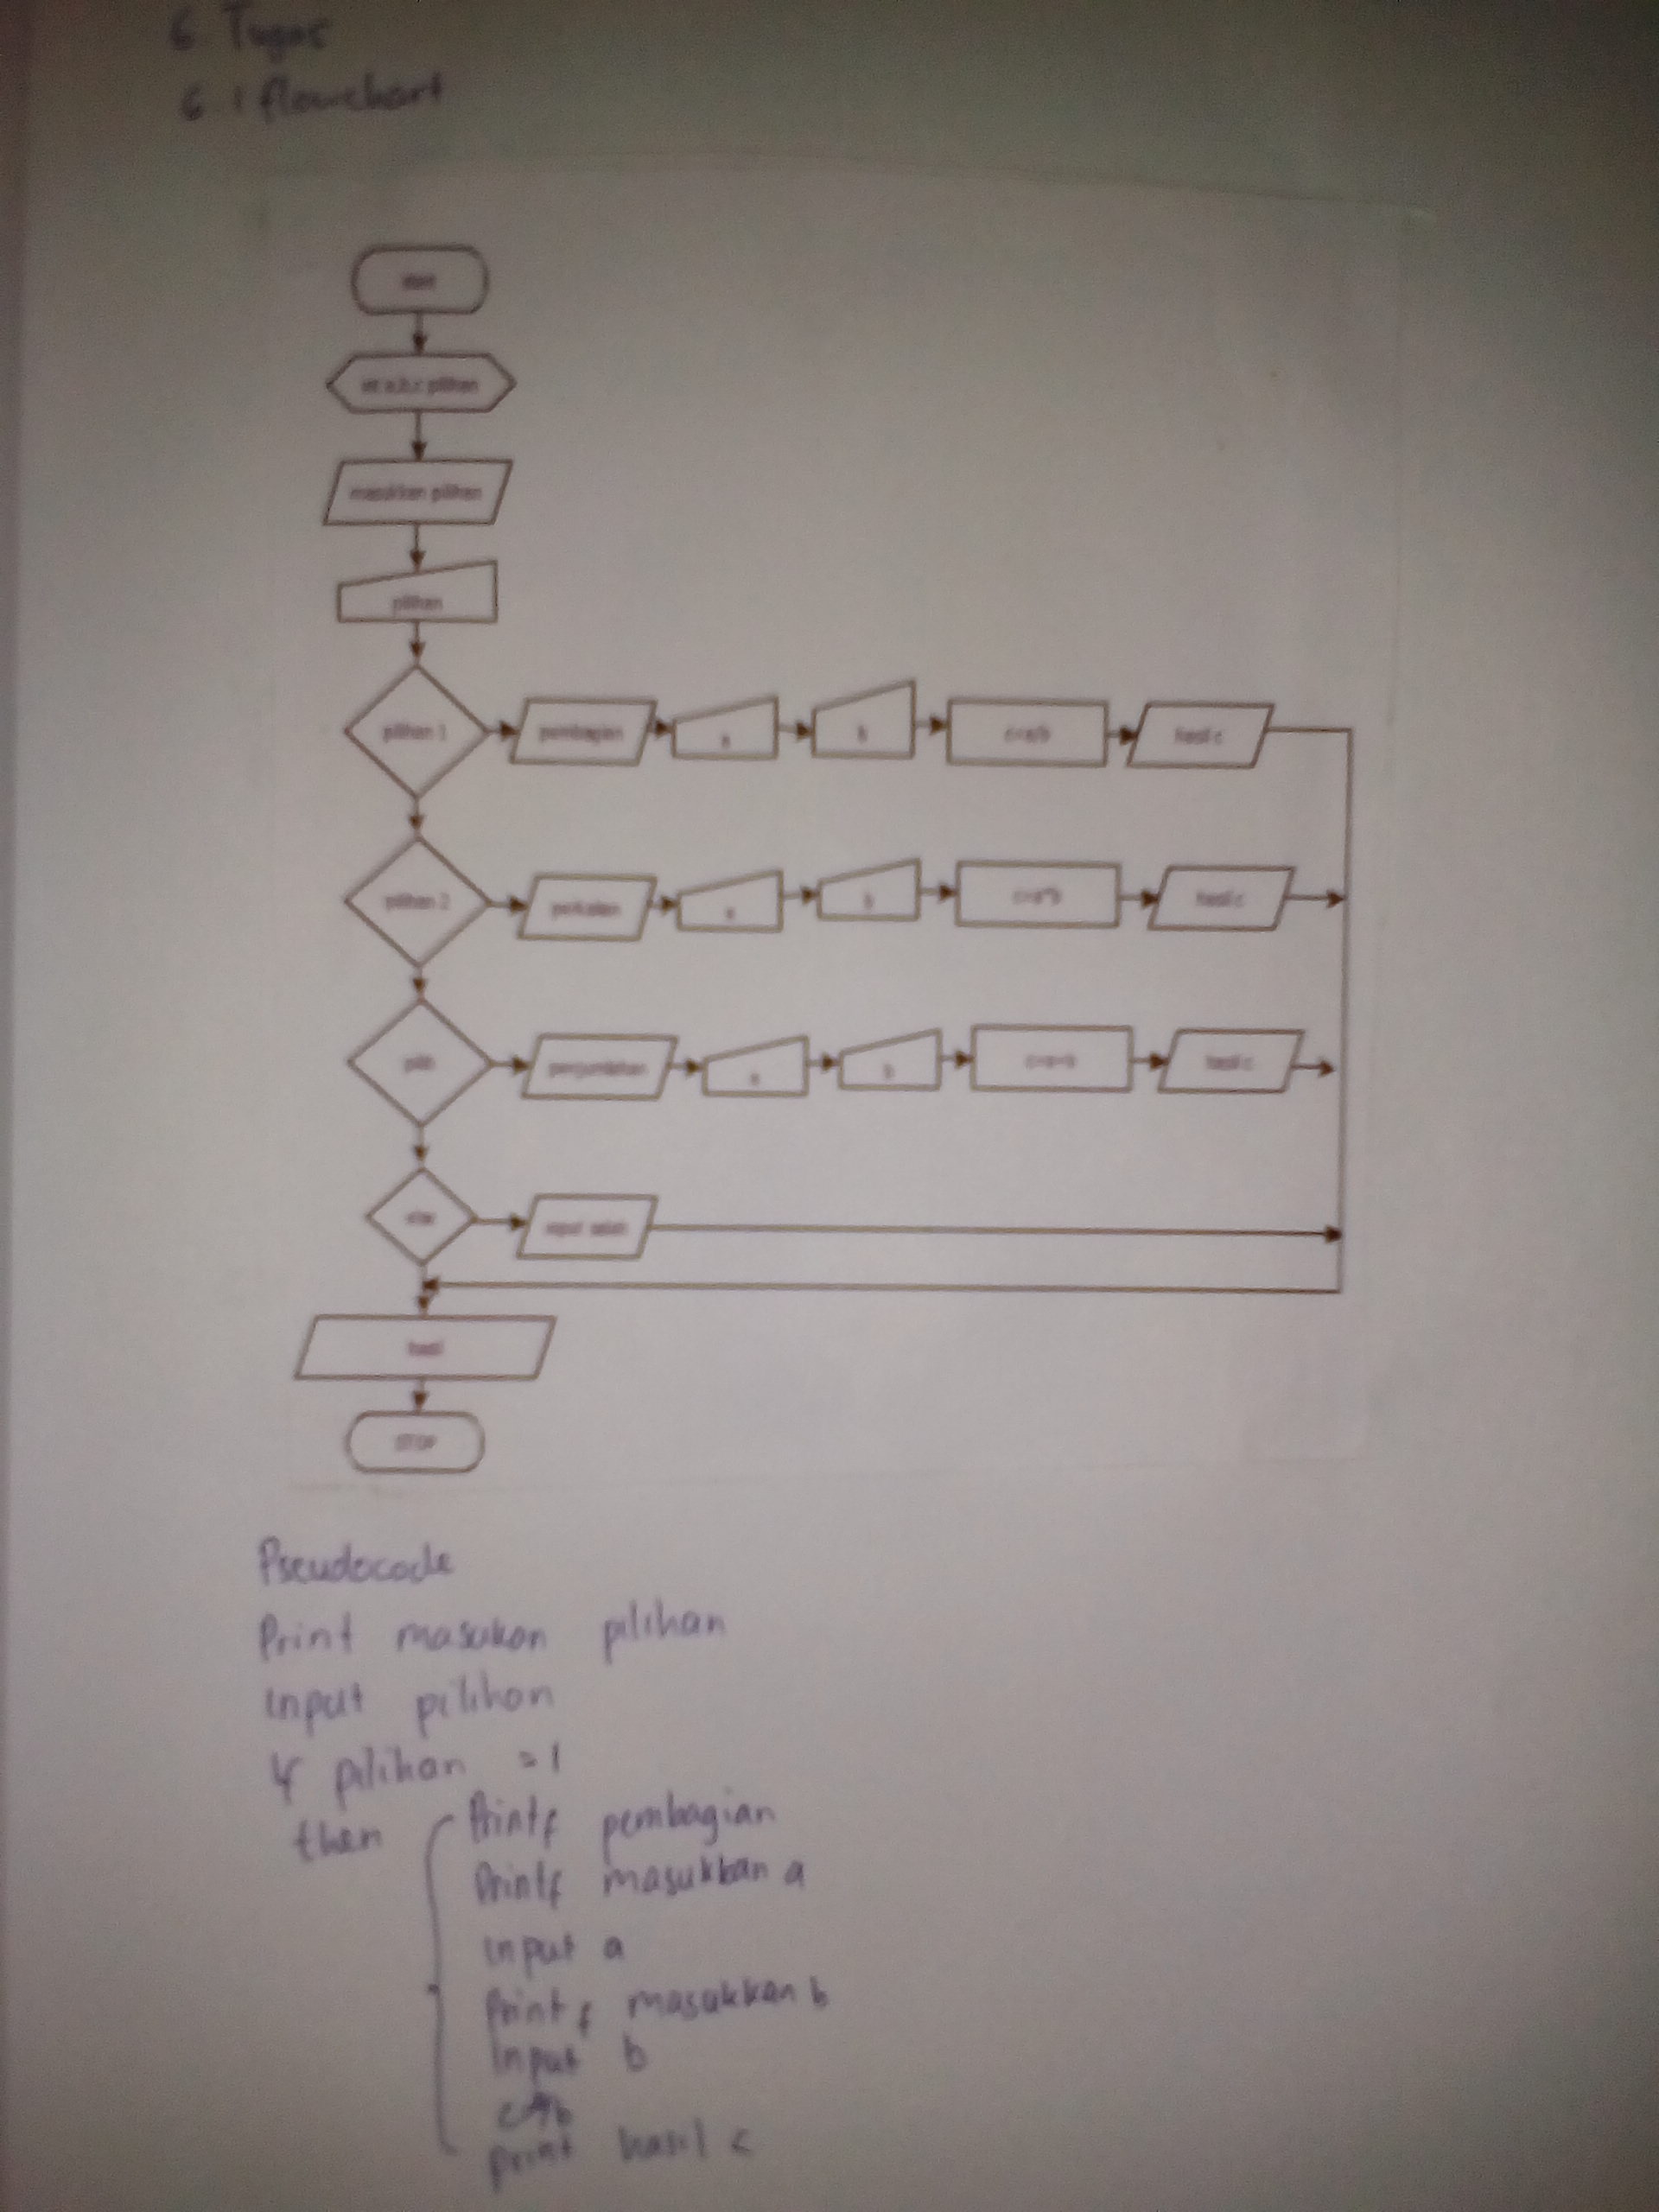 6. Tugas
6.1 flowchart
start
int a,b,c pilihan
masukkan pilihan
pilihan
pilihan 1
pembagian
a
b
c=a/b
hasil c
pilihan 2
perkalian
a
b
c=a*b
hasil c
penjumlahan
a
b
c=a+b
hasil c
else
input salah
hasil
STOP
Pseudocode
Print masukan pilihan
input pilihan
if pilihan =1
then
Printf pembagian
Printf masukkan a
input a
Printf masukkan b
Input b
print hasil c